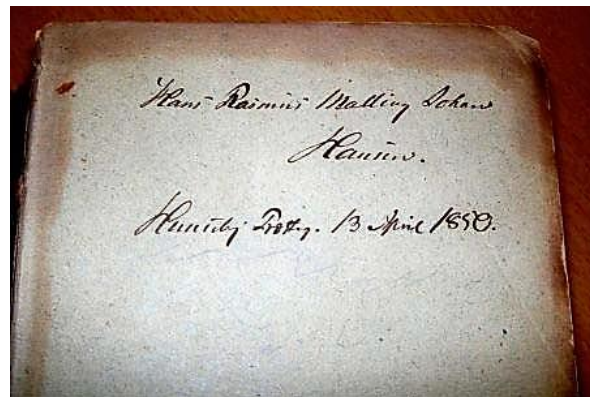 Hans Rasmus Malling Johan
Hansen.
Hunseby Præstg. 13 April 1850.